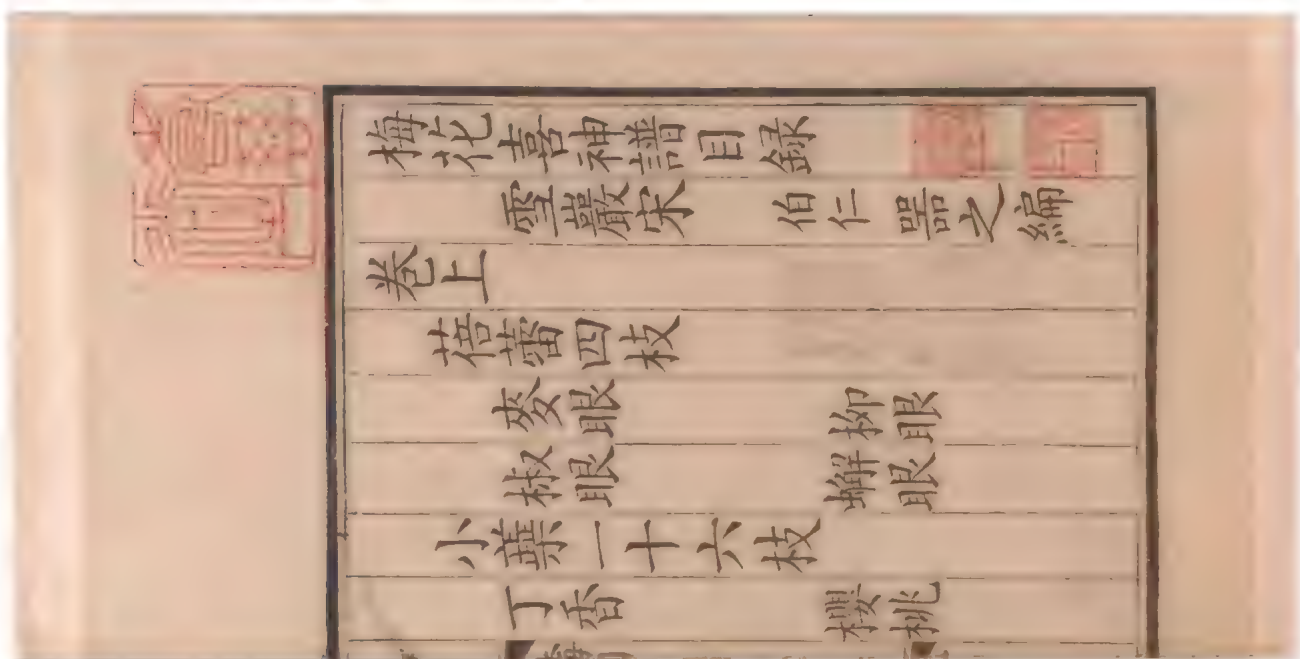 梅花喜神譜目録
雪巖宋 伯仁 器之 編
卷上
蓓蕾四枝
麥眼 柳眼
椒眼 蠏眼
小蘂一十六枝
丁香 櫻桃